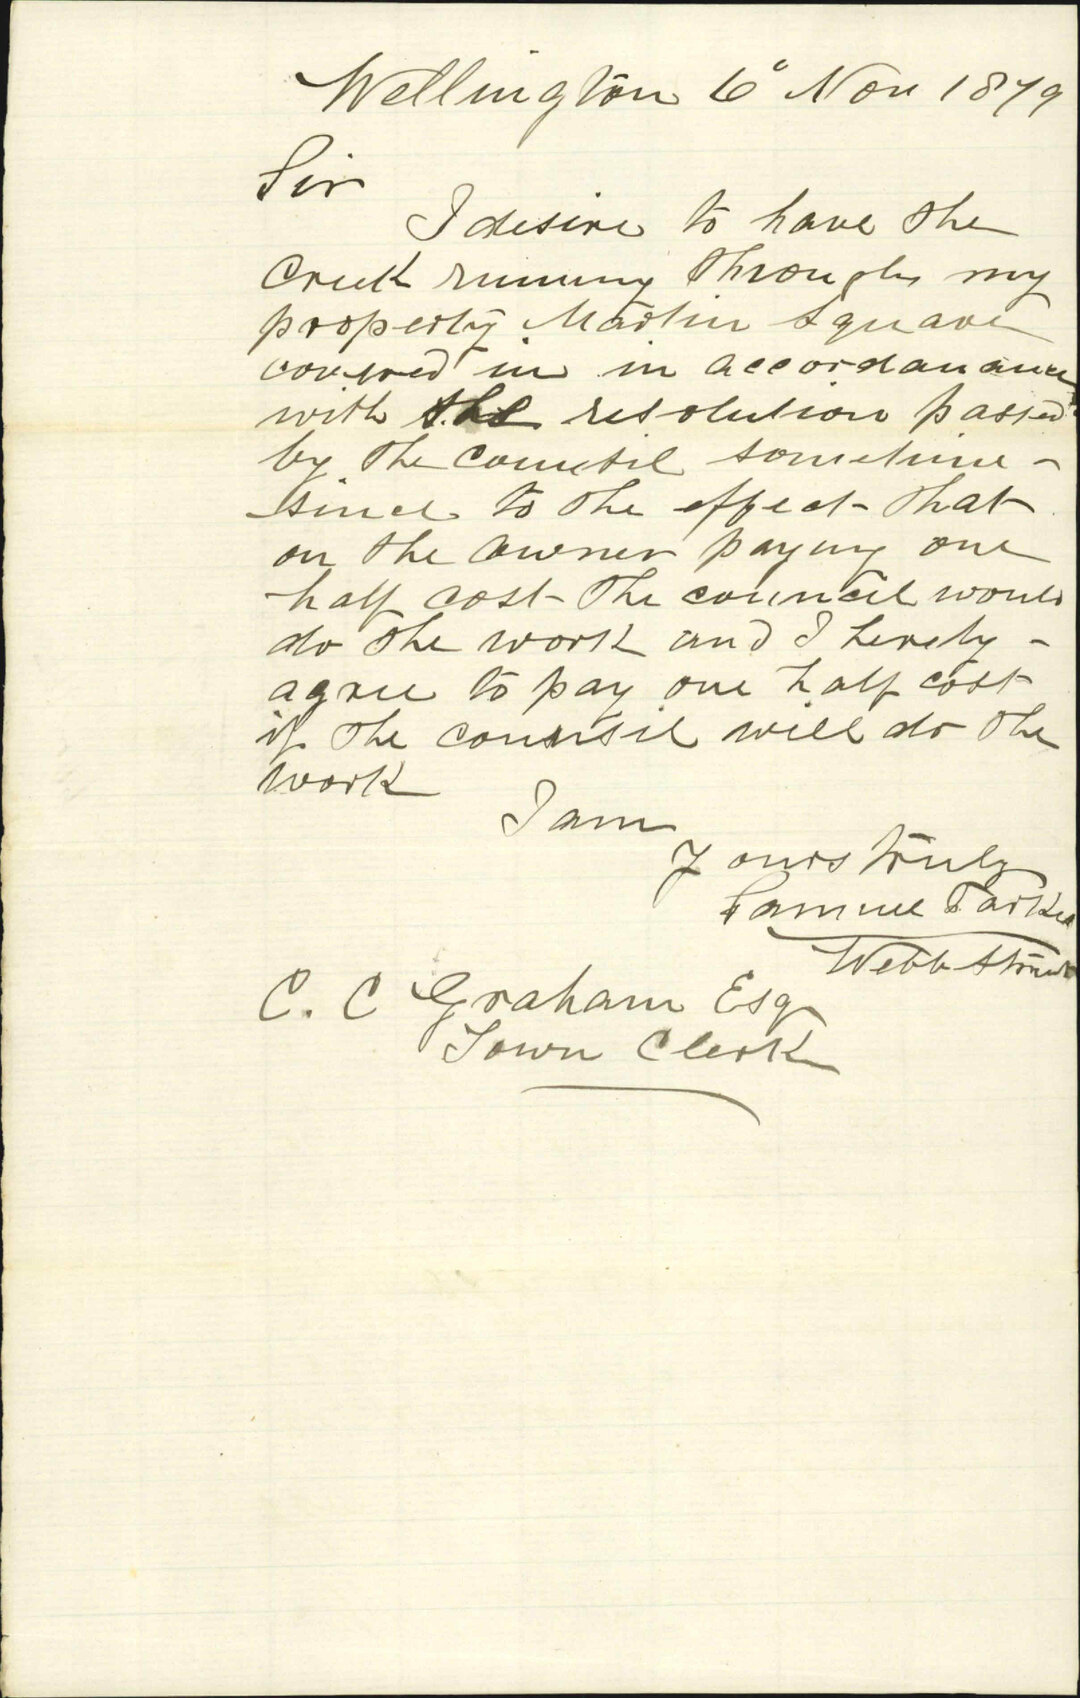 Wellington 6° Nov 1879
Sir
I desire to have the
Creek running through my
property Martin Square
covered in in accordanance
with the resolution passed
by the Counsil sometime -
since to the effect - that
on the owner paying one
half cost - the council would
do the work and I hereby -
agree to pay one half cost
if the counsil will do the
work
I am
Yours truly
Samuel Parker
Webb Street
C. C Graham Esq
Town Clerk